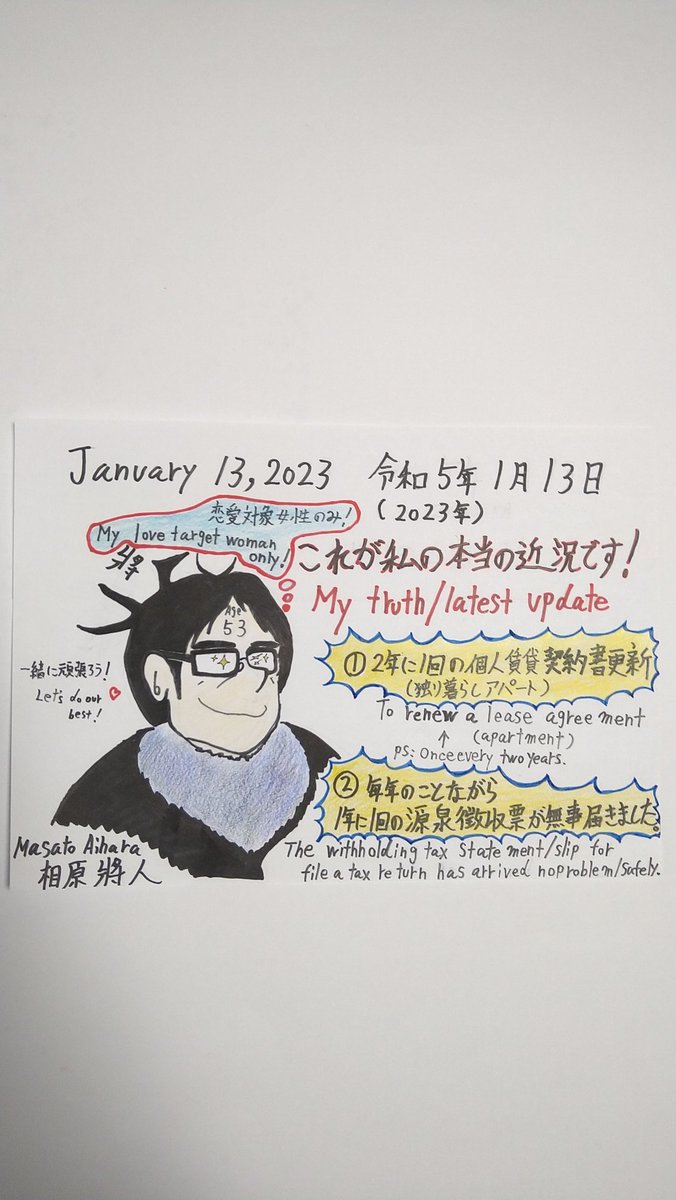 January 13, 2023 令和5年1月13日
(2023年)
恋愛対象女性のみ!
My love target woman
only!
將
これが私の本当の近況です!
My truth/latest update
Age
53
一緒に頑張ろう!
Let's do our
best!
①2年に1回の個人賃貸契約書更新
(独り暮らしアパート)
To renew a lease agreement
↑ (apartment)
PS: Once every two years.
②毎年のことながら
1年に1回の源泉徴収票が無事届きました。
The withholding tax statement/slip for
file a tax return has arrived no problem/safely.
Masato Aihara
相原將人